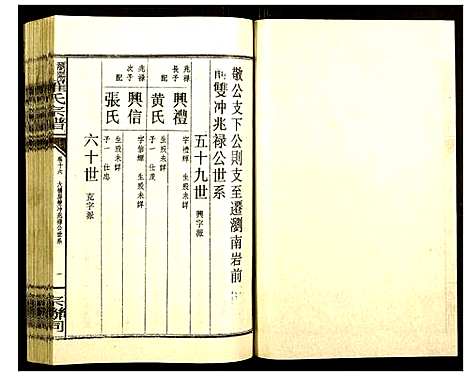 敬公支下公則支至遷瀏南岩前
雙冲兆禄公世系
五十九世 興字派
兆禄長子 興禮 字禮輝 生殁未詳
配 黄氏 生殁未詳 子一 仕茂
兆禄次子 興信 字信輝 生殁未詳
配 張氏 生殁未詳 子一 仕忠
六十世 克字派
氏宗譜
卷十六
雙冲兆禄公世系
一